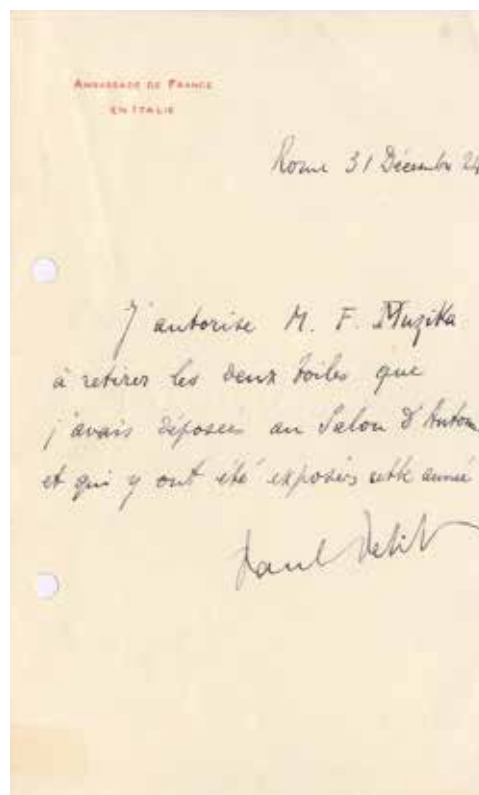 AMBASSADE DE FRANCE
EN ITALIE
Rome 31 Décembre 24
J'autorise M. F. Muzika
à retirer les deux toiles que
j'avais déposées au Salon d'Autom
et qui y ont été exposées cette année
Paul Petit